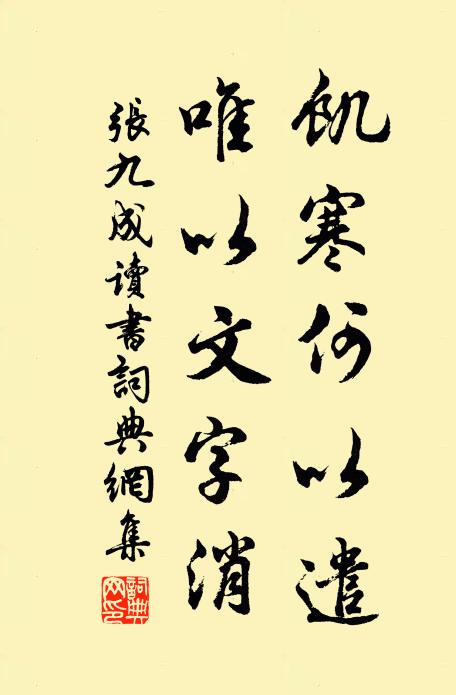 飢寒何以遣
唯以文字消
張九成讀書詞典網集
詞典網印